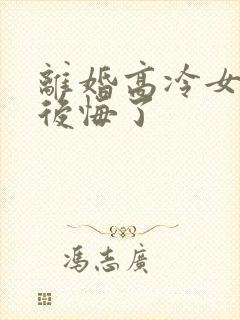 離婚高冷女
後悔了
馮志廣